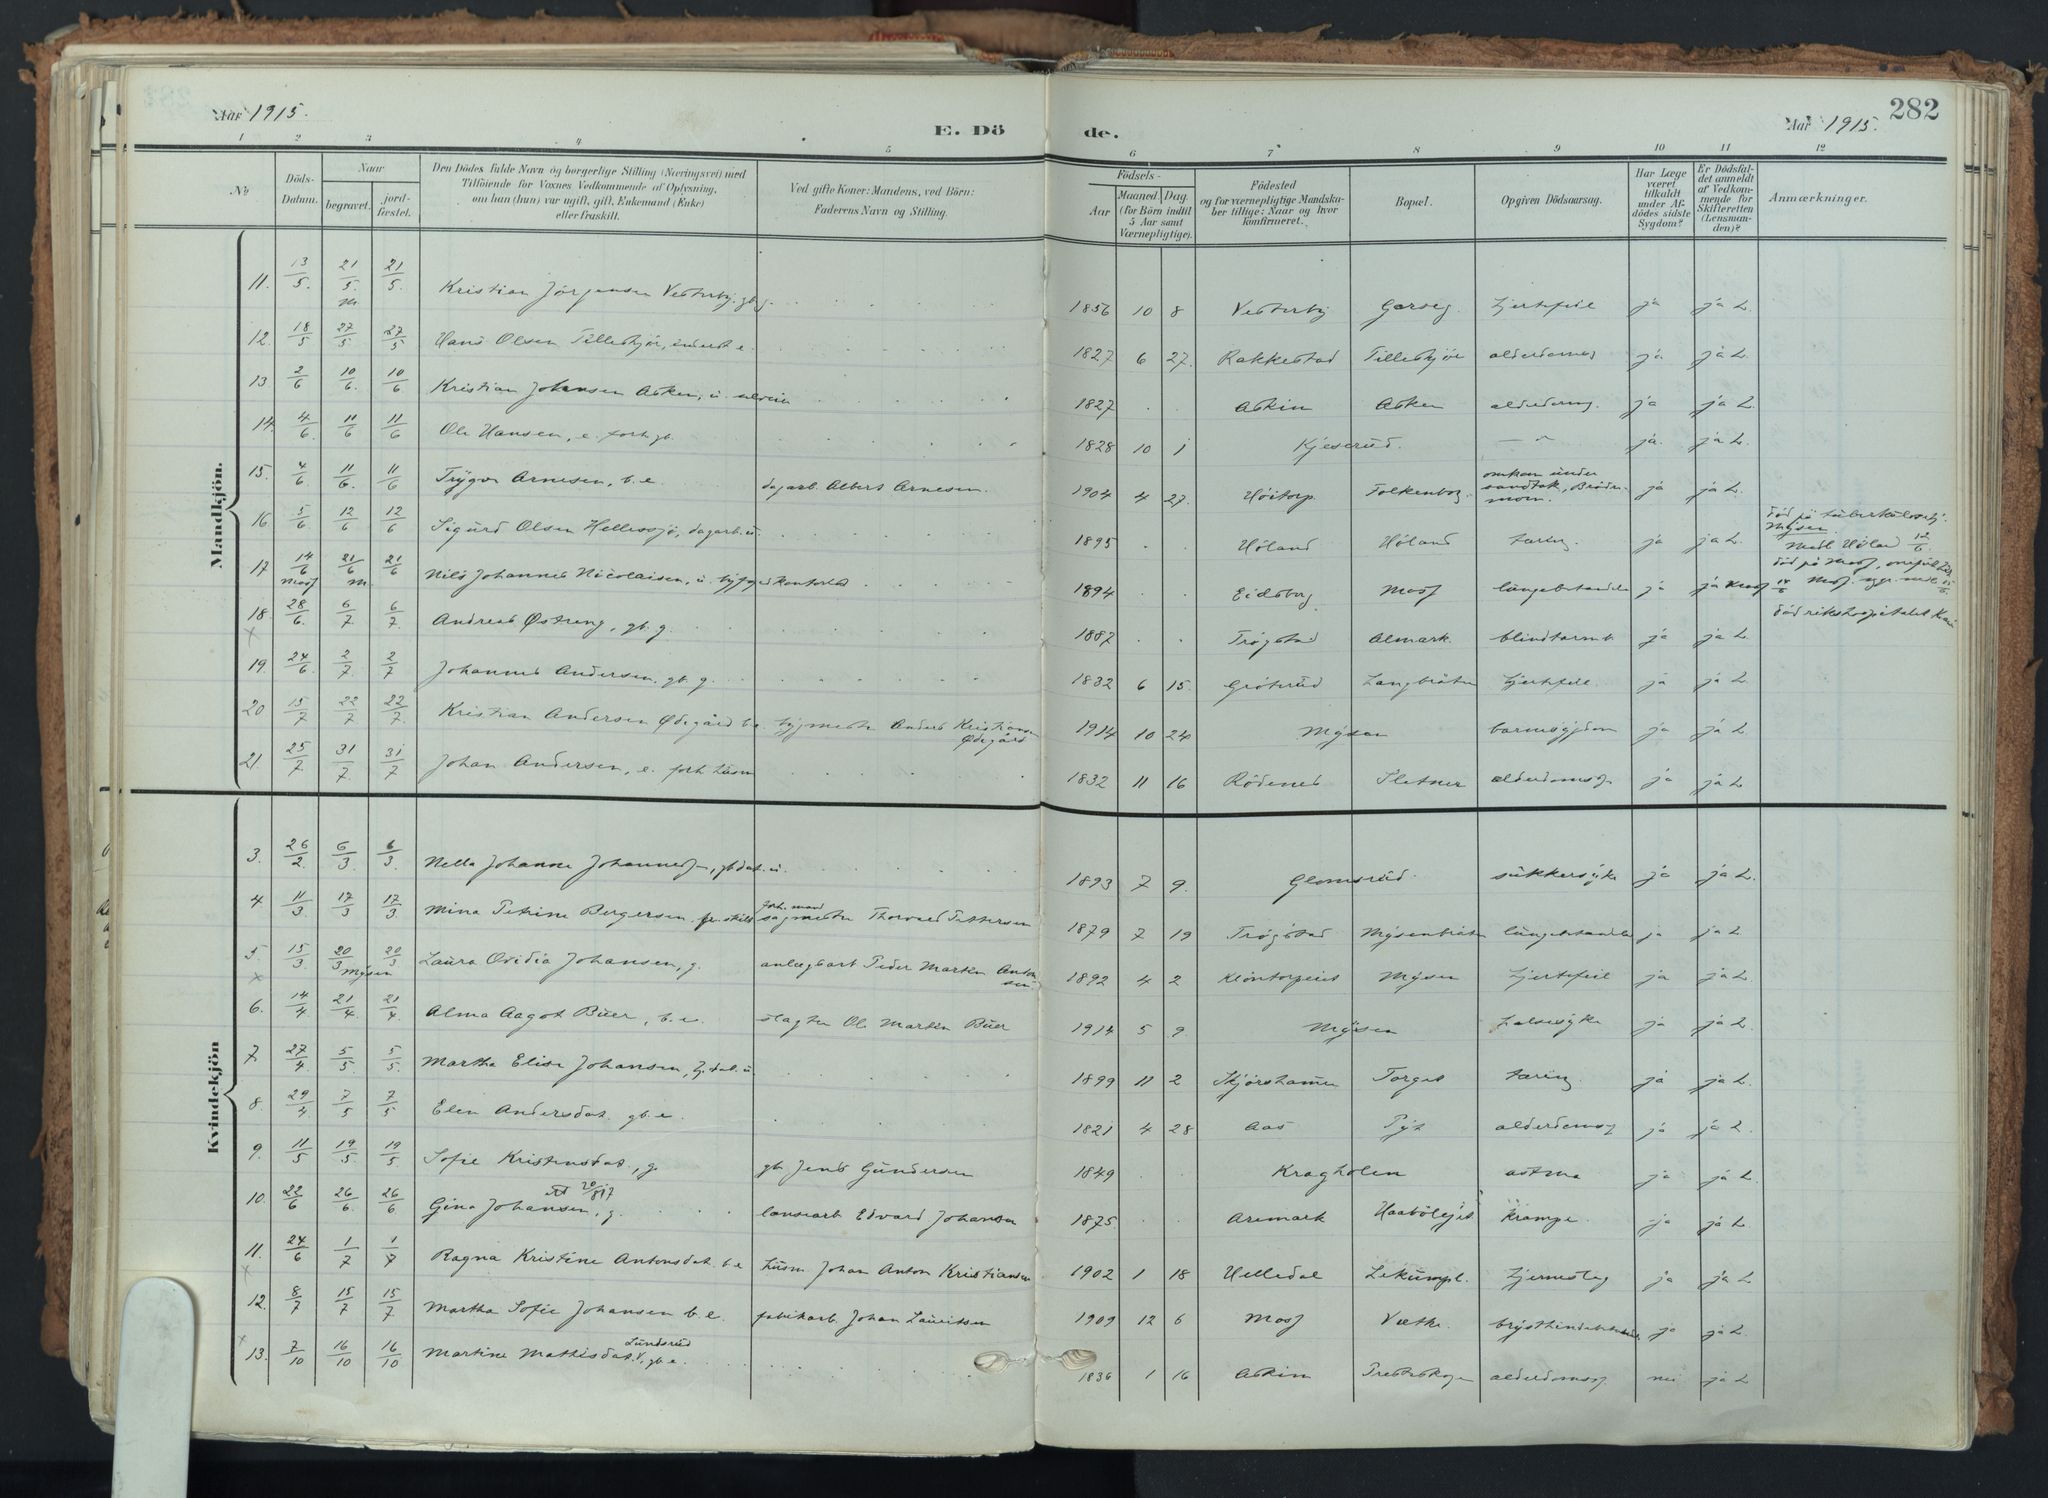 282
Aar 1915.
E. Dö
de.
Aar 1915.
1 2 3 4 5 6 7 8 9 10 11 12
No
Döds-Datum.
Naar
begravet.
jord-fæstet.
Den Dödes fulde Navn og borgerlige Stilling (Næringsvei) med
Tilföiende for Voxnes Vedkommende af Oplysning,
om han (hun) var ugift, gift, Enkemand (Enke)
eller fraskilt.
Ved gifte Koner: Mandens, ved Börn:
Faderens Navn og Stilling.
Födsels-
Aar
Maaned. Dag.
(for Börn indtil
5 Aar samt
Værnepligtige).
Födested
og for værnepligtige Mandska-
ber tillige: Naar og hvor
konfirmeret.
Bopæl.
Opgiven Dödsaarsag.
Har Læge
været
tilkaldt
under Af-
dödes sidste
Sygdom?
Er Dödsfal-
det anmeldt
af Vedkom-
mende for
Skifteretten
(Lensman-
den)?
Anmærkninger.
Mandkjön.
11. 13/5. 21/5. m 21/5. Kristian Jörgensen Vesterby. gb. g. 1856 10 8 Vesterby hjertefeil ja ja L.
12. 18/5 27/5 27/5 Hans Olsen e. 1827 6 27. Rakkestad ja ja L.
13. 2/6 10/6. 10/6 Kristian Johansen Asken, u. 1827 Askim Asken ja ja L.
14. 4/6. 11/6 11/6 Ole Hansen, e. forh. gb. 1828 10 1 Kjeserud. ja. ja L.
15. 4/6. 11/6. 11/6 Trygve Arnesen, b. e. dagarb. Albert Arnesen. 1904 4 27. Höitorp. Folkenborg. omkom under sandtak, ja ja L.
16. 5/6 12/6 12/6 Sigurd Olsen Hellessjö, dagarb. u. 1895 Höland Höland tæring. ja ja L. död på Mysen.
17 14/6 Moss 21/6 m. 21/6 Nils Johannes Nicolaisen, u. 1894 Eidsberg Moss lungebetændelse ja ja Moss död på Moss,
18. 28/6. 6/7. 6/7. Andreas Østreng, gb. g. 1887 Trøgstad Almark. blindtarmb. ja ja L. död rikshospitalet
19. 24/6 2/7 2/7 Johannes Andersen, gb. g. 1832 6 15. Grøterud Langbråten hjertefeil ja ja L.
20 15/7 22/7 22/7. Kristian Andersen Ødegård b. e. bygmester Anders Kristiansen Ødegård 1914 10 24 Mysen barnesygdom ja ja L.
21. 25/7. 31/7. 31/7 Johan Andersen, e. forh. husm 1832 11 16 Rödenes Sletner alderdomss. ja ja L.
Kvindekjön
3. 26/2 6/3 6/3. Nella Johanne gbdat. u. 1893 7 9. Glomsrud sukkersyke ja ja L.
4 11/3 17/3 17/3 Mina Petrine Bergersen. fr. skilt forh. mand sagmester Thorvald Pettersen 1879 7 19 Trøgstad Mysenbråten lungebetændelse ja ja L.
5 15/3. 20/3 Mysen 20/3 Laura Ovidia Johansen, g. anlægsarb Peder Martin Antonsen. 1892 4 2 Mysen hjertefeil ja ja L.
6. 14/4. 21/4. 21/4. Alma Aagot Buer, b. e. slagter Ole Martin Buer 1914 5 9. Mysen halssyke ja ja L.
7 27/4 5/5 5/5 Martha Elise Johansen, u. 1899 11 2 Skjørshammer Torget tæring ja ja L.
8. 29/4 7/5 7/5 Elen Andersdat. gb. e. 1821 4 28 Aas alderdomss. ja ja L.
9. 11/5 19/5. 19/5 Sofie Kristensdat., g. gb. Jens Gundersen 1849 Kragholen astma ja ja L.
10. 22/6 26/6. 26/6 Gina Johansen, g. 20/8 17 Edvard Johansen 1875 Aremark krampe. ja ja L.
11. 24/6 1/7 1/7 Ragna Kristine Antonsdat. b. e husm Johan Anton Kristiansen 1902 1 18 Helledal hjerneslag ja ja L.
12. 8/7 15/7 15/7 Martha Sofie Johansen b. e. fabrikarb. Johan Lauritsen 1909 12 6 Moss ja ja L.
13. 7/10 16/10 16/10 Martine Mathisdat. Lundsrud, gb. e. 1836 1 16 Askim alderdomss. nei ja L